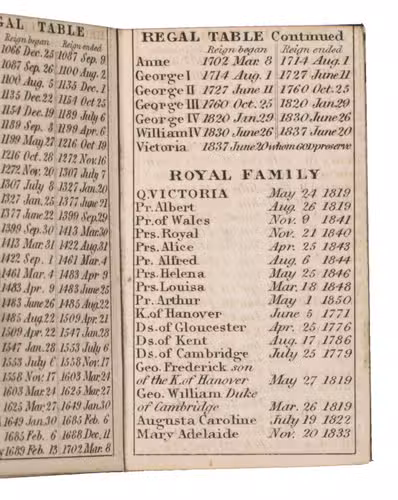 GAL TABLE
Reign began Reign ended
1066 Dec. 25 1087 Sep. 9
1087 Sep. 26 1100 Aug. 2
1100 Aug. 5 1135 Dec. 1
1135 Dec. 22 1154 Oct 25
1154 Dec. 19 1189 July 6
1189 Sep. 3 1199 Apr. 6
1199 May 27 1216 Oct 19
1216 Oct. 28 1272 Nov. 16
1272 Nov. 20 1307 July 7
1307 July 8 1327 Jan. 20
1327 Jan. 25 1377 June 21
1377 June 22 1399 Sep. 29
1399 Sep. 30 1413 Mar. 20
1413 Mar. 31 1422 Aug. 31
1422 Sep. 1 1461 Mar. 4
1461 Mar. 4 1483 Apr. 9
1483 Apr. 9 1483 June 25
1483 June 26 1485 Aug. 22
1485 Aug. 22 1509 Apr. 21
1509 Apr. 22 1547 Jan. 28
1547 Jan. 28 1553 July 6
1553 July 6 1558 Nov. 17
1558 Nov. 17 1603 Mar 24
1603 Mar 24 1625 Mar. 27
1625 Mar. 27 1649 Jan. 30
1649 Jan. 30 1685 Feb. 6
1685 Feb. 6 1688 Dec. 11
1689 Feb. 13 1702 Mar. 8
REGAL TABLE Continued
Reign began Reign ended
Anne 1702 Mar. 8 1714 Aug. 1
George I 1714 Aug. 1 1727 June 11
George II 1727 June 11 1760 Oct. 25
George III 1760 Oct. 25 1820 Jan. 29
George IV 1820 Jan. 29 1830 June 26
William IV 1830 June 26 1837 June 20
Victoria 1837 June 20 whom God preserve
ROYAL FAMILY
Q.VICTORIA May 24 1819
Pr. Albert Aug. 26 1819
Pr. of Wales Nov. 9 1841
Prs. Royal Nov. 21 1840
Prs. Alice Apr. 25 1843
Pr. Alfred Aug. 6 1844
Prs. Helena May 25 1846
Prs. Louisa Mar. 18 1848
Pr. Arthur May 1 1850
K. of Hanover June 5 1771
Ds. of Gloucester Apr. 25 1776
Ds. of Kent Aug. 17 1786
Ds. of Cambridge July 25 1779
Geo. Frederick son
of the K. of Hanover May 27 1819
Geo. William Duke
of Cambridge Mar. 26 1819
Augusta Caroline July 19 1822
Mary Adelaide Nov. 20 1833